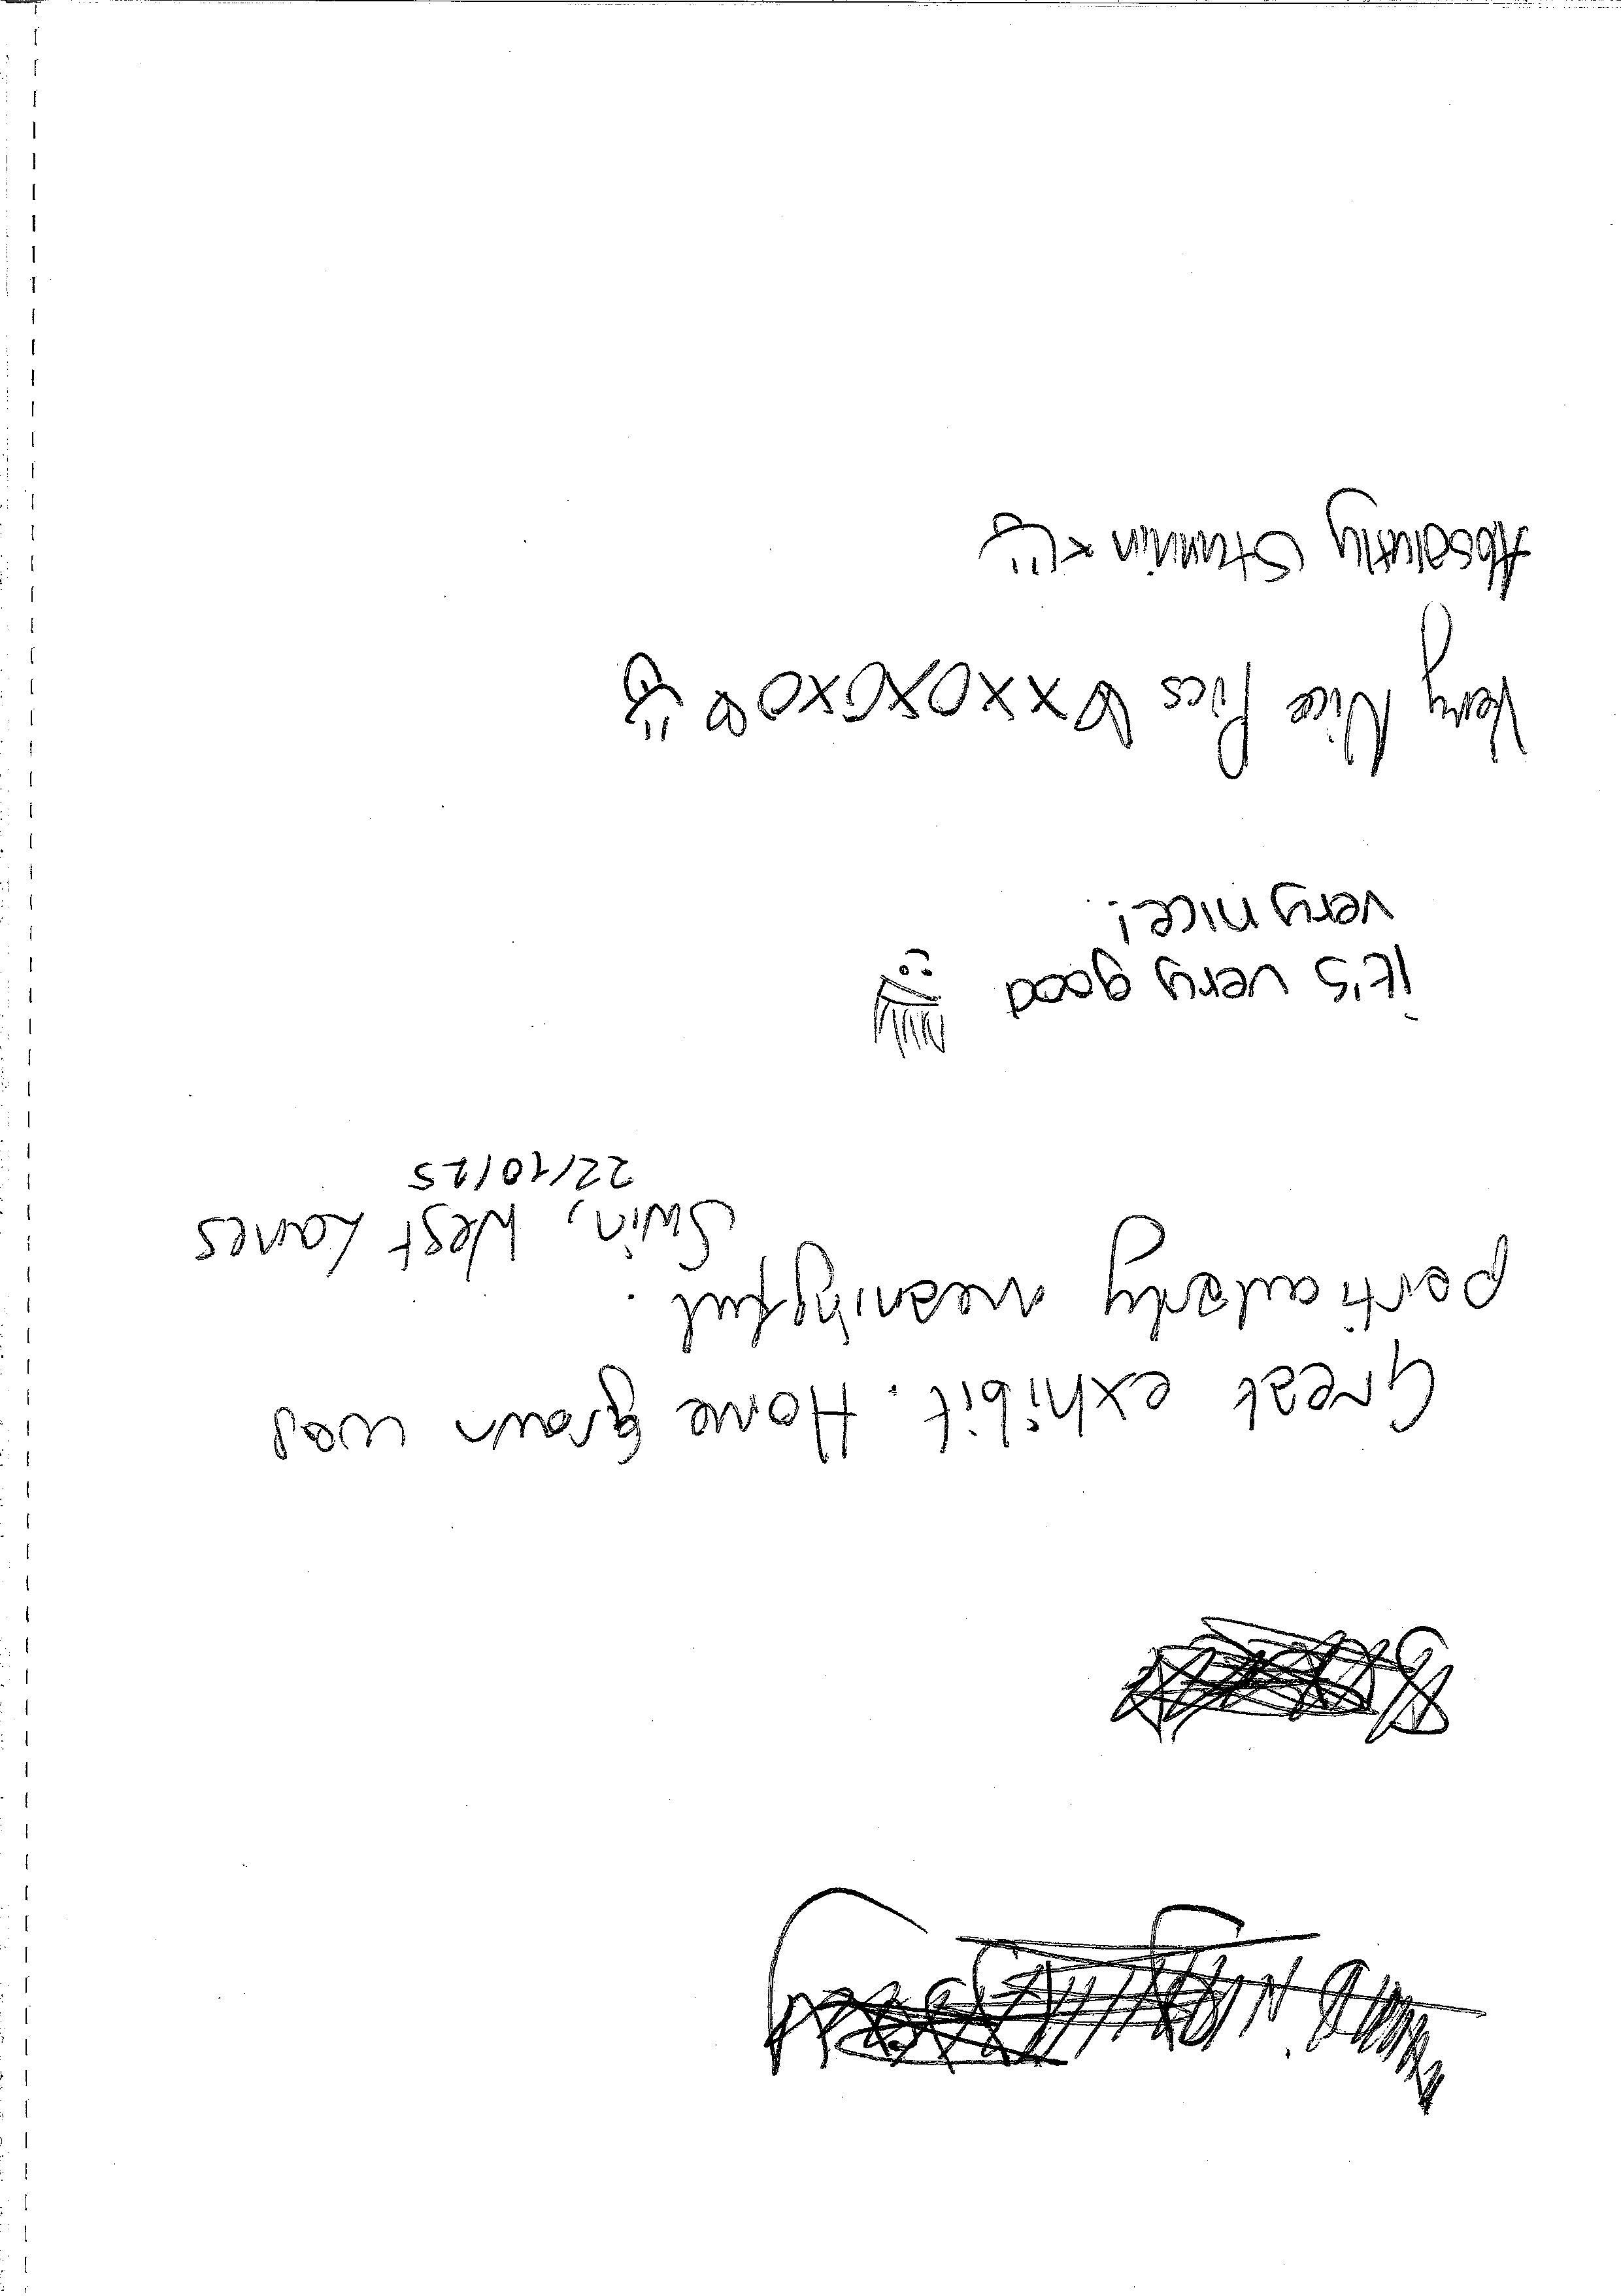 Great exhibit. Home grown was
particularly meaningful.
Swin, West Lancs
22/10/25
it's very good
very nice!
Very Nice Pics xxoxoxo
Absolutly Stunnin x